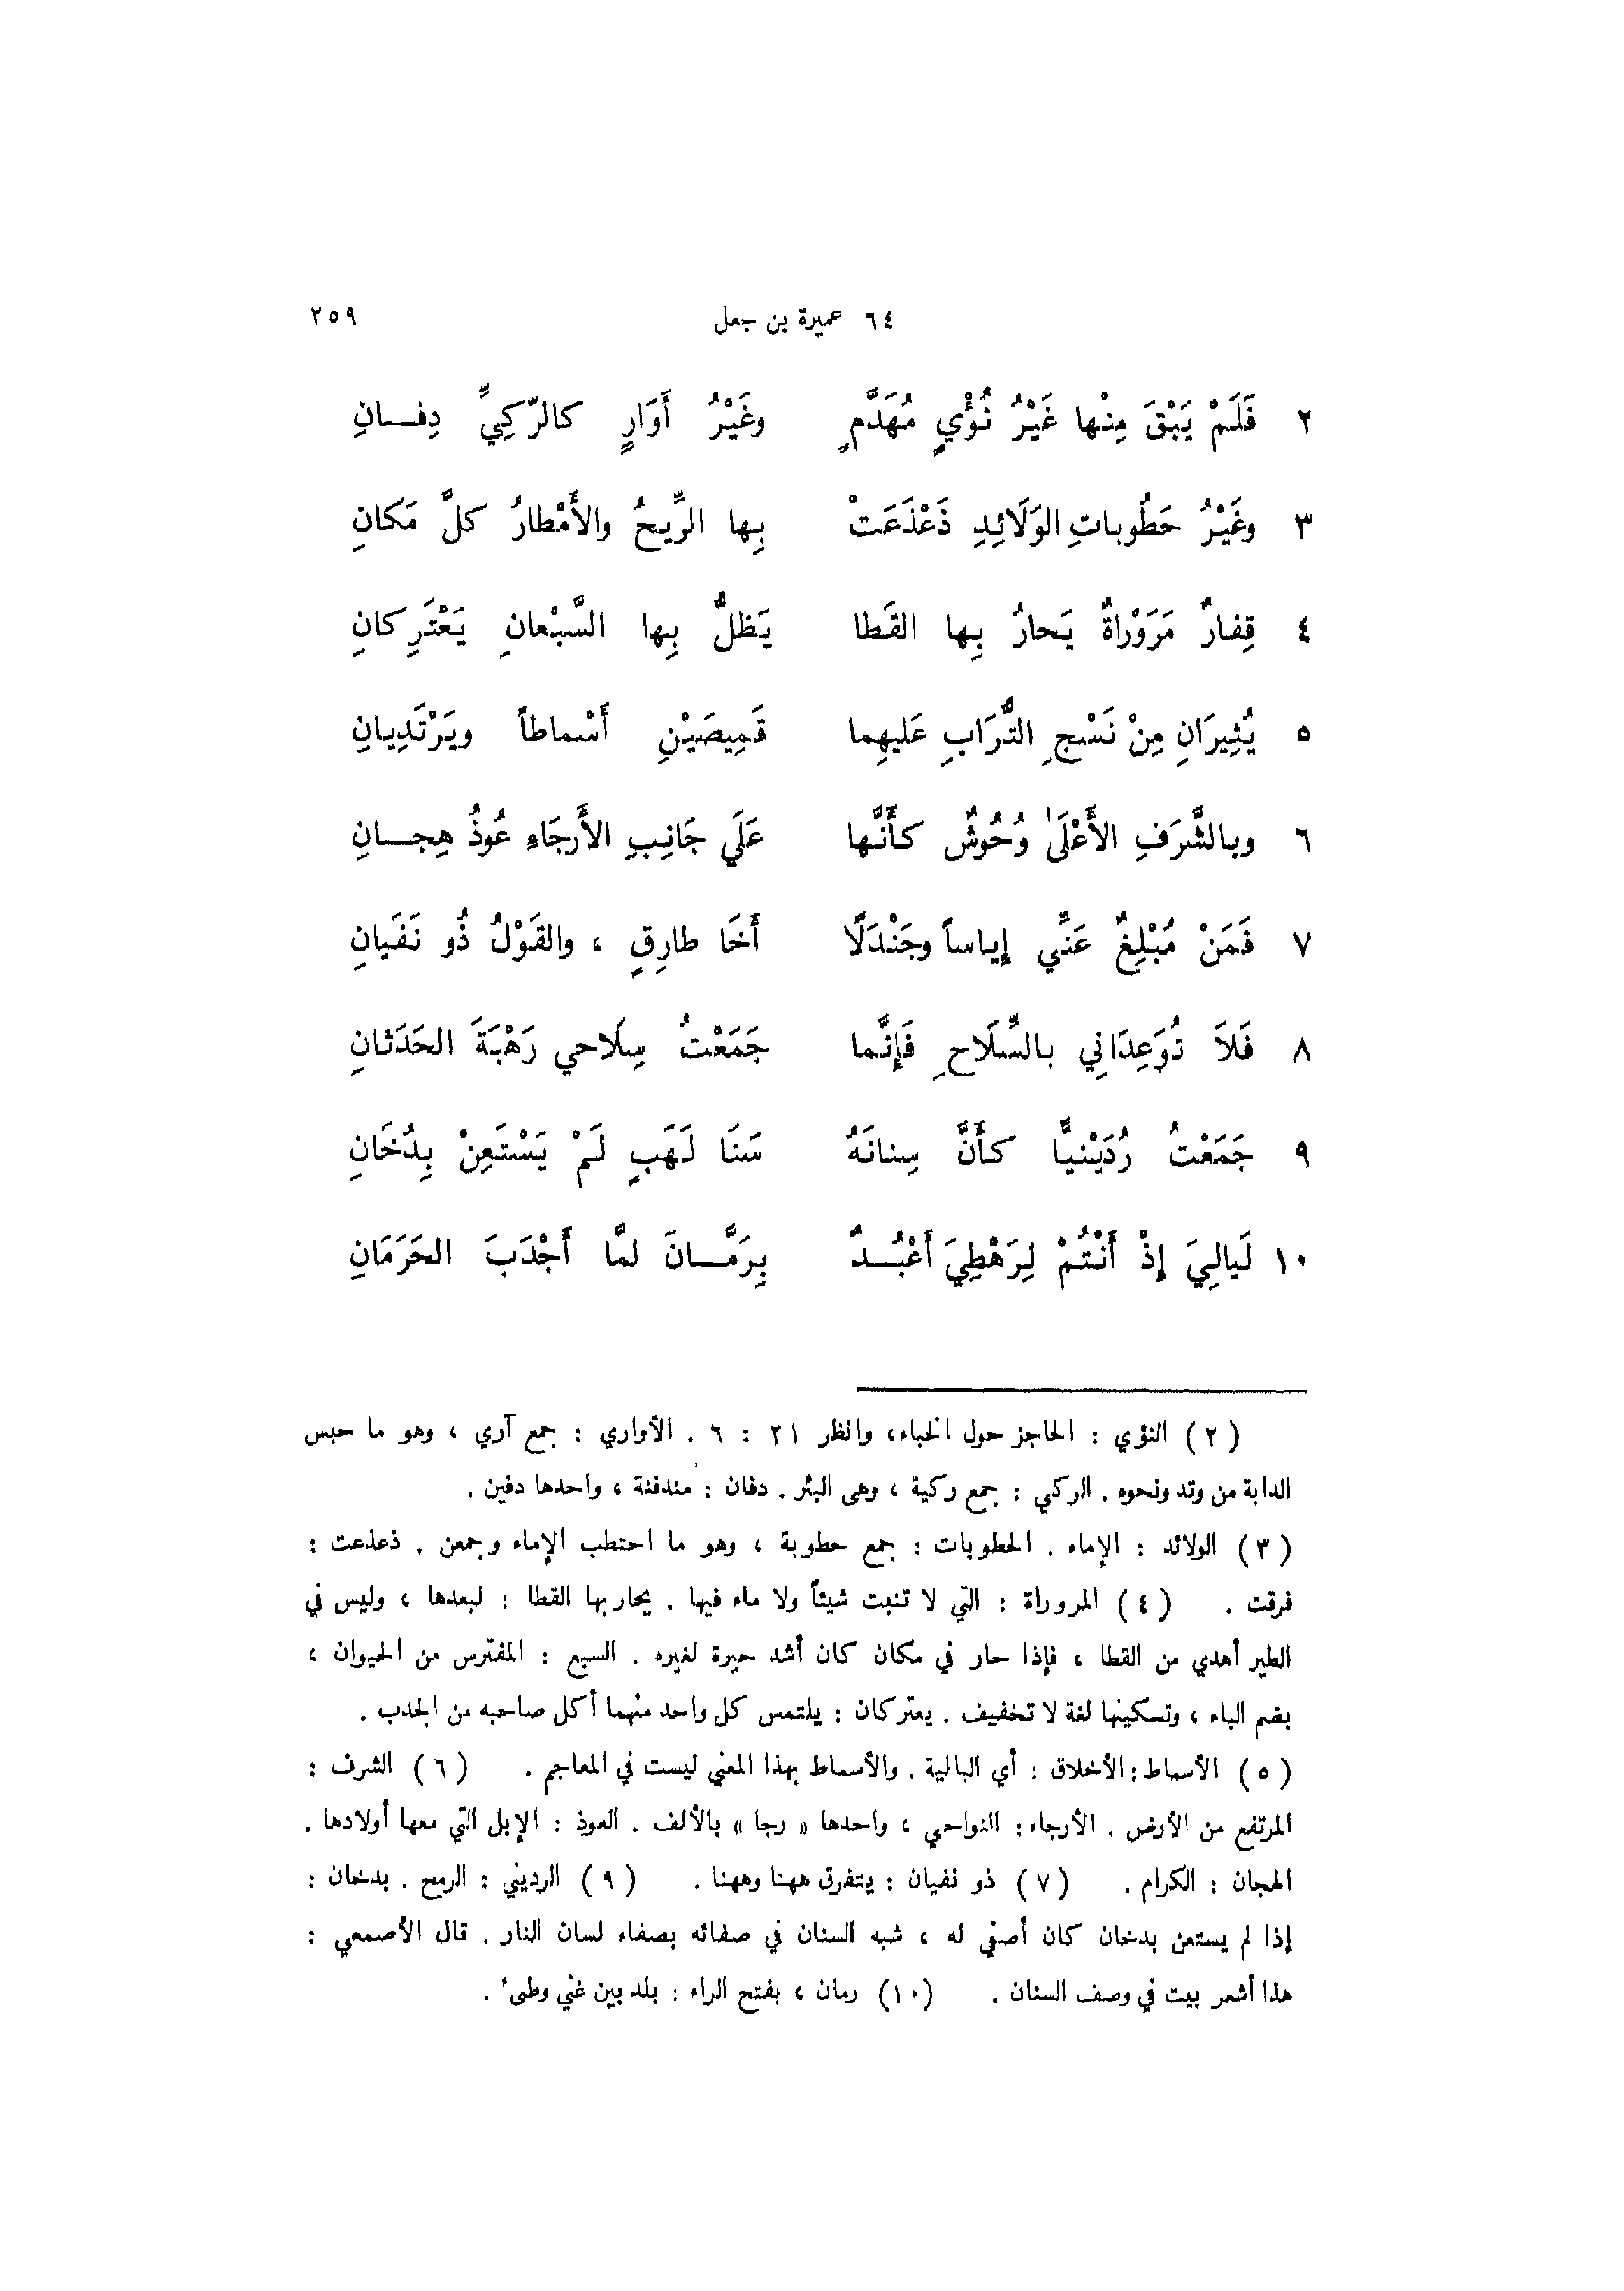 ٦٤ عميرة بن جعل ٢٥٩
٢ فَلَمْ يَبْقَ مِنْها غَيْرُ نُؤْيٍ مُهَدَّمٍ وغَيْرُ أَوَارٍ كالرَّكِيِّ دِفــانِ
٣ وغَيْرُ حَطُوباتِ الوَلَائِدِ ذَعْذَعَتْ بِها الرِّيحُ والأَمْطارُ كلَّ مَكانِ
٤ قِفارٌ مَرَوْراةٌ يَحارُ بِها القَطا يَظلُّ بِها السَّبْعانِ يَعْتَرِكانِ
٥ يُثِيرَانِ مِنْ نَسْجِ التُّرَابِ عَليهِما قَمِيصَيْنِ أَسْماطاً ويَرْتَدِيانِ
٦ وبالشَّرَفِ الأَعْلَىٰ وُحُوشٌ كأَنَّها عَلَي جَانِبِ الأَرجَاءِ عُوذُ هِجــانِ
٧ فَمَنْ مُبْلِغٌ عَنِّي إِياساً وجَنْدَلًا أَخَا طارِقٍ ، والقَوْلُ ذُو نَفَيانِ
٨ فَلاَ تُوَعِدَانِي بالسِّلَاحِ فَإِنَّما جَمَعْتُ سِلَاحي رَهْبَةَ الحَدَثانِ
٩ جَمَعْتُ رُدَيْنيًّا كأَنَّ سِنانَهُ سَنَا لَهَبٍ لَمْ يَسْتَعِنْ بِدُخَانِ
١٠ لَيالِيَ إِذْ أَنْتُمْ لِرَهْطِيَ أَعْبُــدٌ بِرَمَّــانَ لمَّا أَجْدَبَ الحَرَمَانِ
( ٢ ) النؤي : الحاجز حول الخباء، وانظر ٢١ : ٦ . الأواري : جمع آري ، وهو ما حبس
الدابة من وتد ونحوه . الركي : جمع ركية ، وهى البئر . دفان : مندفنة ، واحدها دفين .
( ٣ ) الولائد : الإماء . الحطوبات : جمع حطوبة ، وهو ما احتطب الإماء وجمعن . ذعذعت :
فرقت . ( ٤ ) المروراة : التي لا تنبت شيئاً ولا ماء فيها . يحاربها القطا : لبعدها ، وليس في
الطير أهدي من القطا ، فإذا حار في مكان كان أشد حيرة لغيره . السبع : المفترس من الحيوان ،
بضم الباء ، وتسكينها لغة لا تخفيف . يعتركان : يلتمس كل واحد منهما أكل صاحبه من الجدب .
( ٥ ) الأسماط : الأخلاق : أي البالية . والأسماط بهذا المعني ليست في المعاجم . ( ٦ ) الشرف :
المرتفع من الأرض . الأرجاء : النواحي ، واحدها « رجا » بالألف . العوذ : الإبل التي معها أولادها .
الهجان : الكرام . ( ٧ ) ذو نفيان : يتفرق ههنا وههنا . ( ٩ ) الرديني : الرمح . بدخان :
إذا لم يستعن بدخان كان أصفي له ، شبه السنان في صفائه بصفاء لسان النار . قال الأصمعي :
هذا أشعر بيت في وصف السنان . (١٠) رمان ، بفتح الراء : بلد بين غني وطيء .